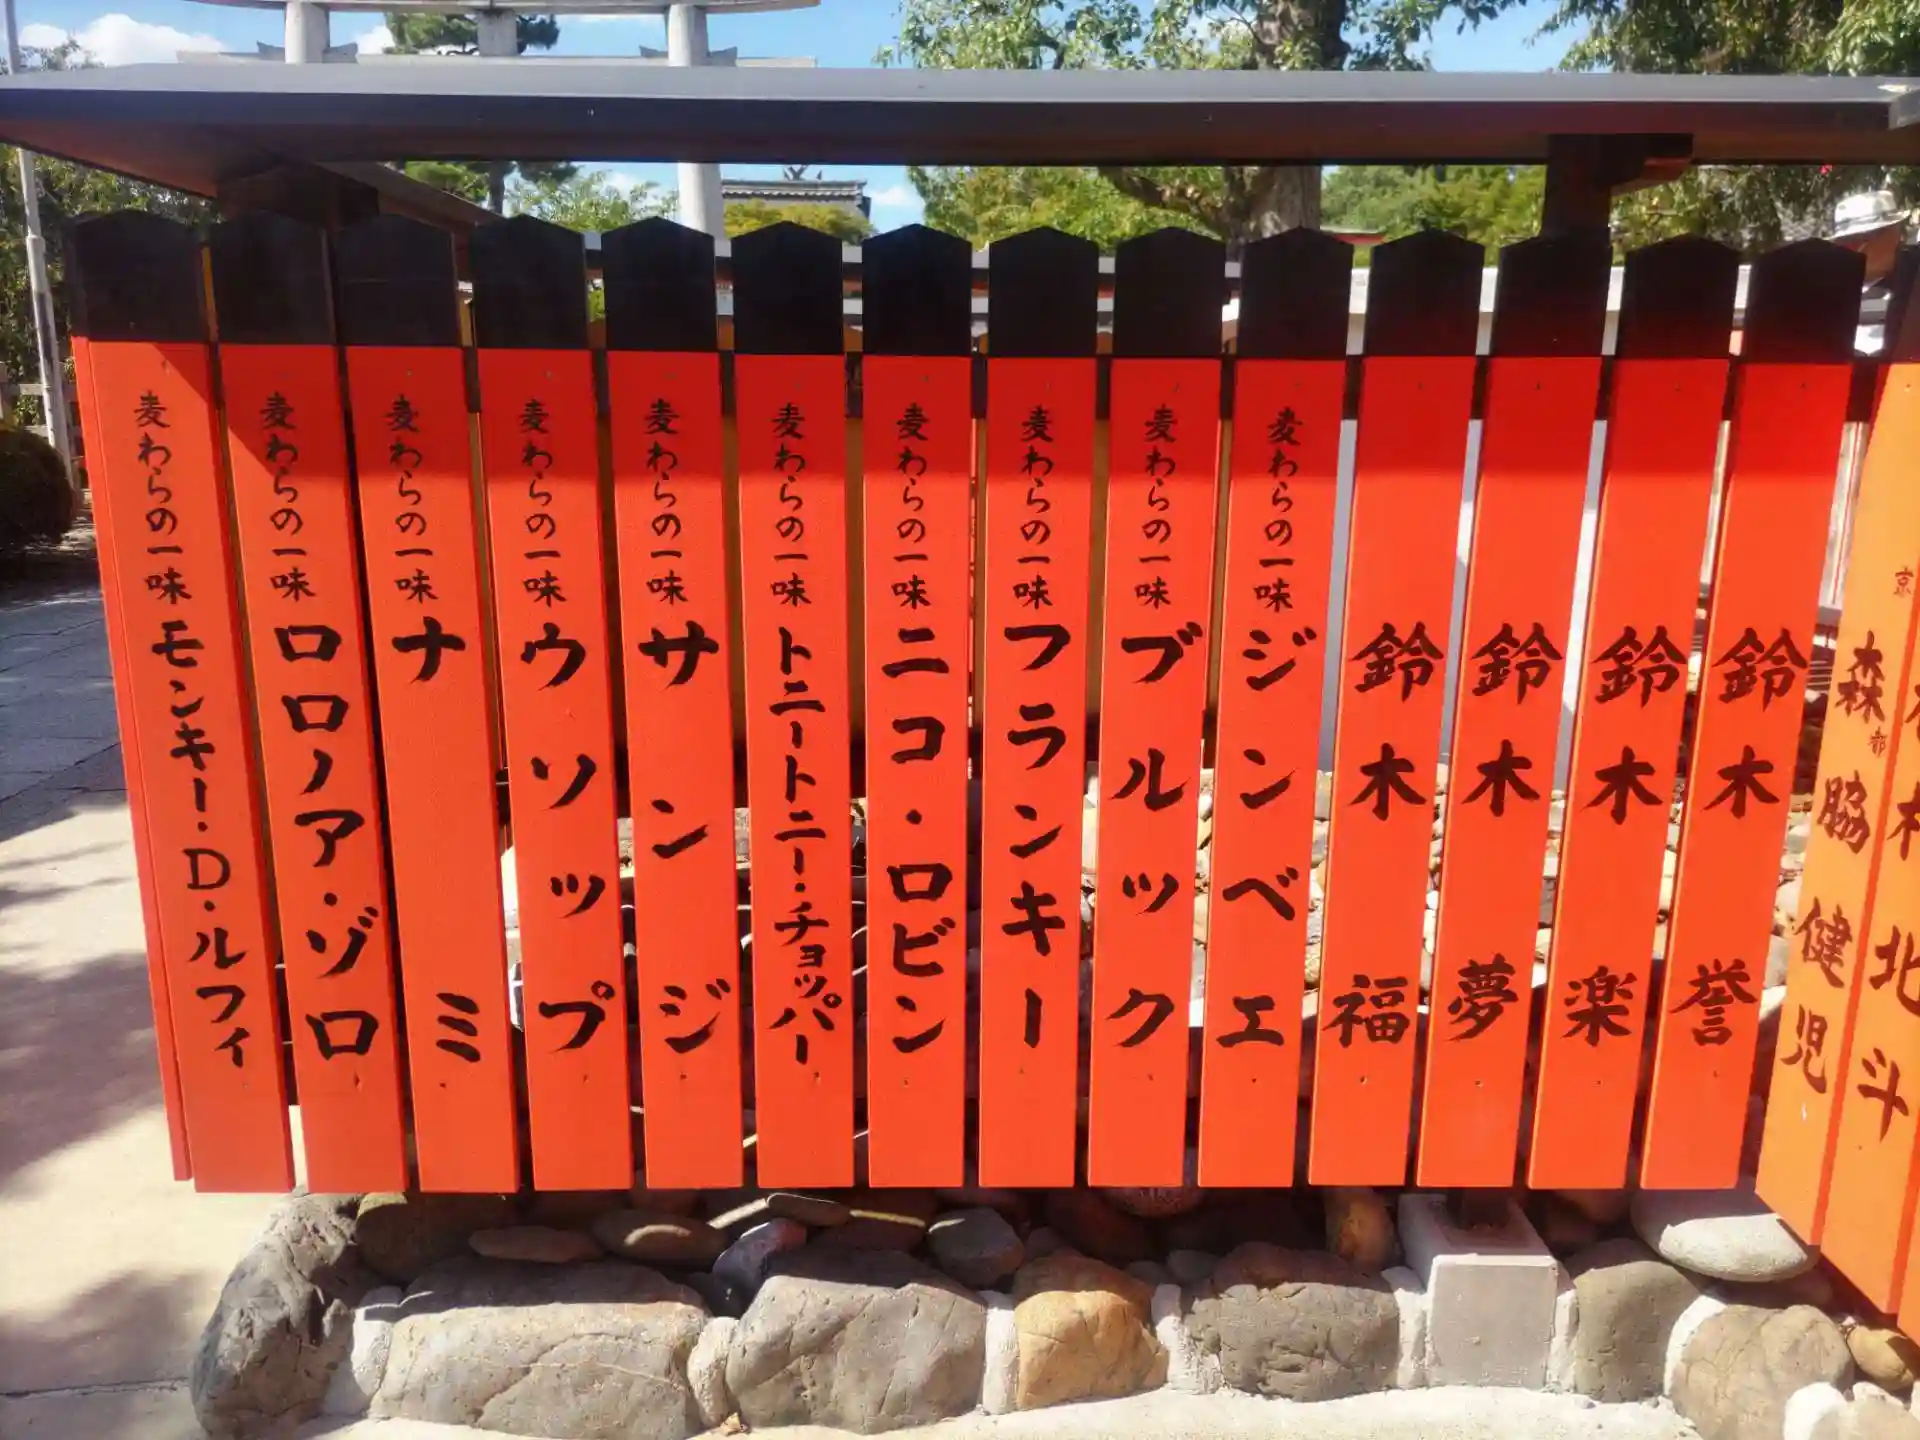 麦わらの一味 モンキー・D・ルフィ
麦わらの一味 ロロノア・ゾロ
麦わらの一味 ナミ
麦わらの一味 ウソップ
麦わらの一味 サンジ
麦わらの一味 トニートニー・チョッパー
麦わらの一味 ニコ・ロビン
麦わらの一味 フランキー
麦わらの一味 ブルック
麦わらの一味 ジンベエ
鈴木福
鈴木夢
鈴木楽
鈴木誉
森脇健児
京都
北斗